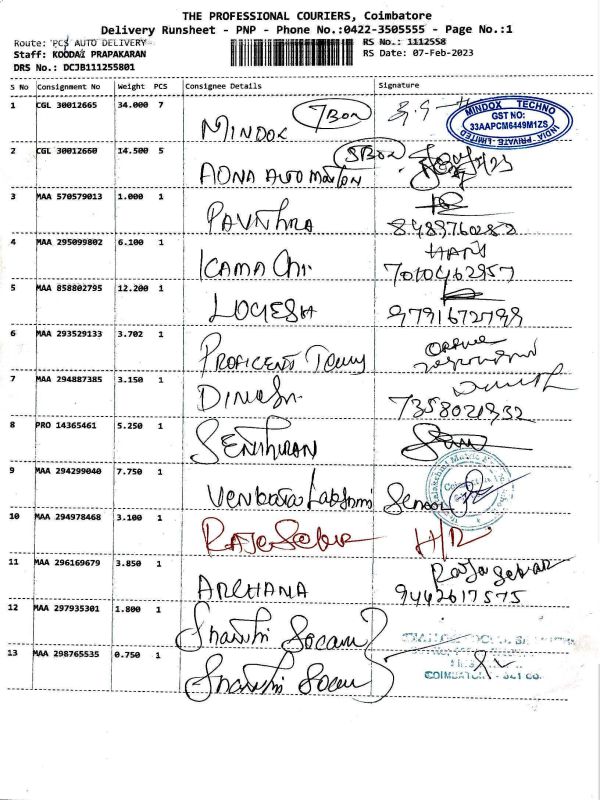 THE PROFESSIONAL COURIERS, Coimbatore
Delivery Runsheet - PNP - Phone No.:0422-3505555 - Page No.:1
Route: PCS AUTO DELIVERY RS No.: 1112558
Staff: KOODAI PRAPAKARAN RS Date: 07-Feb-2023
DRS No.: DCJB111255801
S No Consignment No Weight PCS Consignee Details Signature
1 CGL 30012665 34.000 7 MINDOX 7 Box
MINDOX TECHNO INDIA PRIVATE LIMITED
GST NO:
33AAPCM6449M1ZS
2 CGL 30012660 14.500 5 AONA AUTOMATION 5 Box
3 MAA 570579013 1.000 1 PAVITHRA
4 MAA 295099802 6.100 1 KAMACHI HARI
7010462957
5 MAA 858802795 12.200 1 LOGESH
9791672799
6 MAA 293529133 3.702 1 PROFICENTS
7 MAA 294887385 3.150 1 DINESH
7358021932
8 PRO 14365461 5.250 1
9 MAA 294299040 7.750 1 Venkata Lakshmi
10 MAA 294978468 3.100 1 RAJASEKAR H/R
11 MAA 296169679 3.850 1 ARCHANA Rajasekar
9442617575
12 MAA 297935301 1.800 1 Shanthi Socam
13 MAA 298765535 0.750 1 Shanthi Socam
COIMBATORE